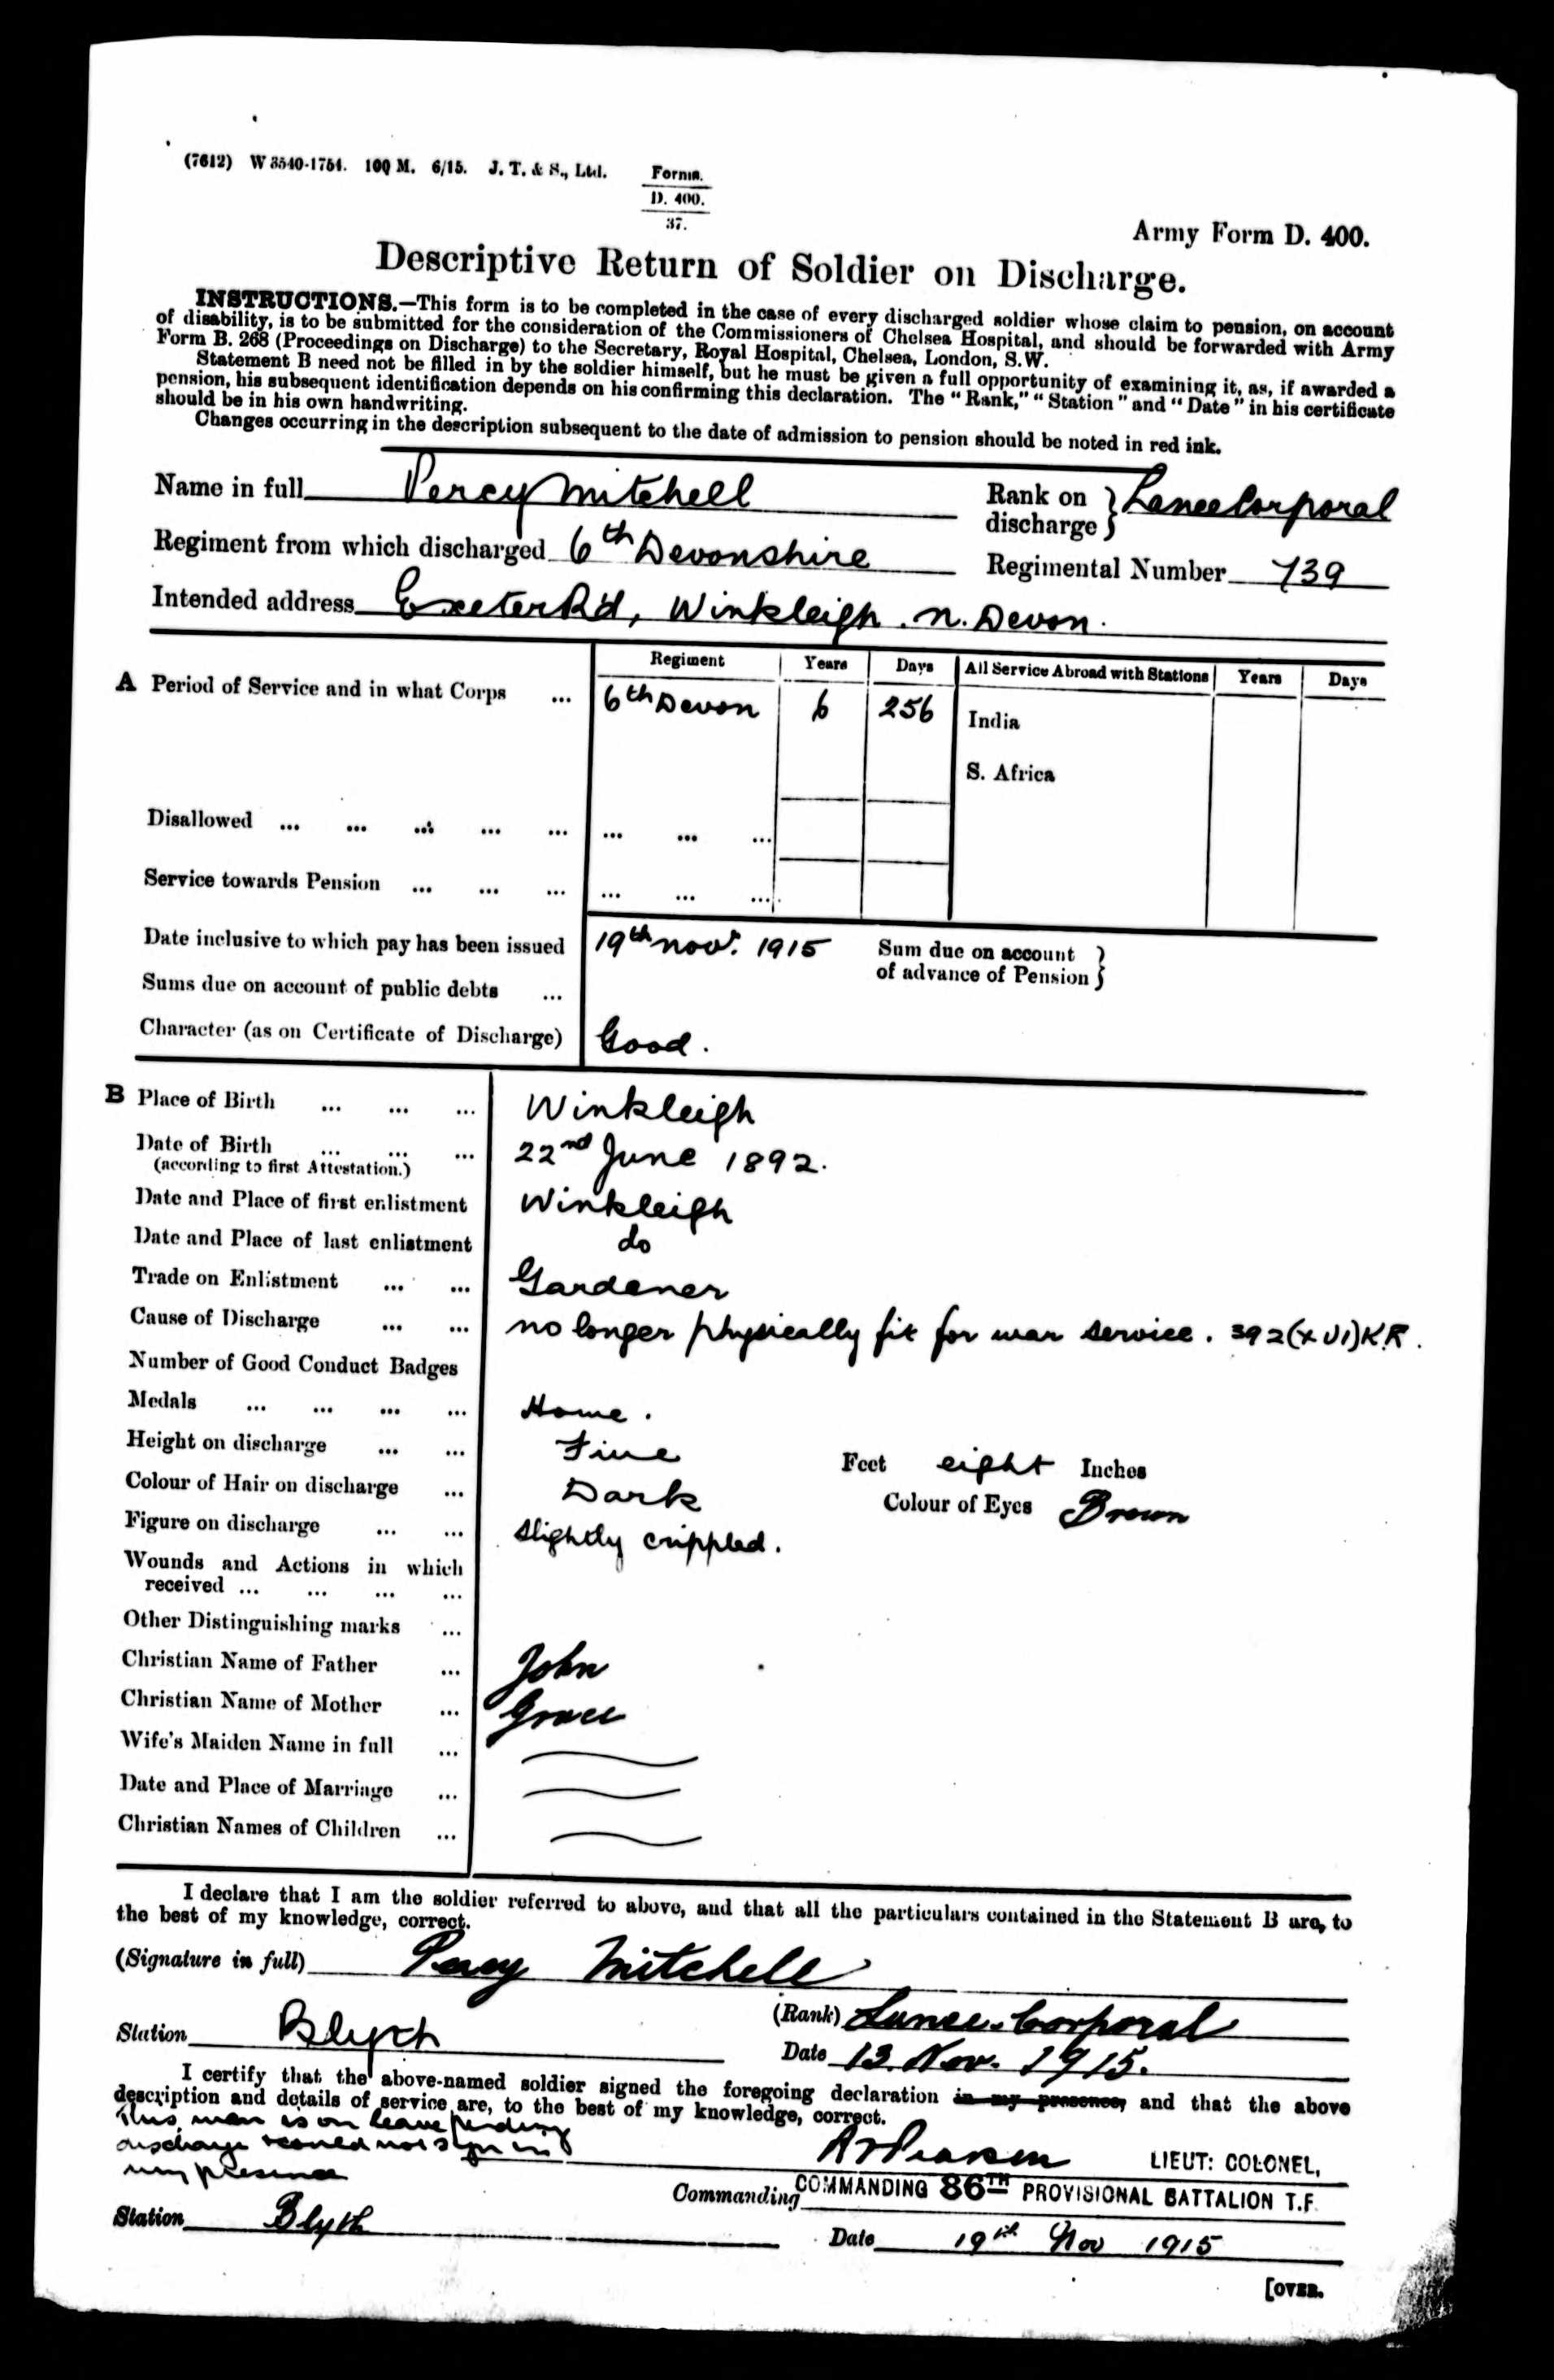 (7612) W 3540-1754. 100 M. 6/15. J. T. & S., Ltd. Forms.
D. 400.
37.
Army Form D. 400.
Descriptive Return of Soldier on Discharge.
INSTRUCTIONS.—This form is to be completed in the case of every discharged soldier whose claim to pension, on account
of disability, is to be submitted for the consideration of the Commissioners of Chelsea Hospital, and should be forwarded with Army
Form B. 268 (Proceedings on Discharge) to the Secretary, Royal Hospital, Chelsea, London, S.W.
Statement B need not be filled in by the soldier himself, but he must be given a full opportunity of examining it, as, if awarded a
pension, his subsequent identification depends on his confirming this declaration. The "Rank," "Station" and "Date" in his certificate
should be in his own handwriting.
Changes occurring in the description subsequent to the date of admission to pension should be noted in red ink.
Name in full Percy Mitchell Rank on discharge } Lance Corporal
Regiment from which discharged 6th Devonshire Regimental Number 739
Intended address Exeter Rd, Winkleigh. N. Devon.
Regiment Years Days All Service Abroad with Stations Years Days
A Period of Service and in what Corps ... 6th Devon 6 256 India
S. Africa
Disallowed ... ... ... ... ... ... ... ...
Service towards Pension ... ... ... ... ... ...
Date inclusive to which pay has been issued 19th Novr. 1915 Sum due on account of advance of Pension }
Sums due on account of public debts ...
Character (as on Certificate of Discharge) Good.
B Place of Birth ... ... ... Winkleigh
Date of Birth ... ... ... 22nd June 1892.
(according to first Attestation.)
Date and Place of first enlistment Winkleigh
Date and Place of last enlistment do
Trade on Enlistment ... ... Gardener
Cause of Discharge ... ... no longer physically fit for war service. 392(XVI)K.R.
Number of Good Conduct Badges
Medals ... ... ... ... Home.
Height on discharge ... ... Five Feet eight Inches
Colour of Hair on discharge ... Dark Colour of Eyes Brown
Figure on discharge ... ... Slightly crippled.
Wounds and Actions in which
received ... ... ... ...
Other Distinguishing marks ...
Christian Name of Father ... John
Christian Name of Mother ... Grace
Wife's Maiden Name in full ...
Date and Place of Marriage ...
Christian Names of Children ...
I declare that I am the soldier referred to above, and that all the particulars contained in the Statement B are, to
the best of my knowledge, correct.
(Signature in full) Percy Mitchell
(Rank) Lance-Corporal
Station Blyth Date 13. Nov. 1915.
I certify that the above-named soldier signed the foregoing declaration in my presence, and that the above
description and details of service are, to the best of my knowledge, correct.
This man is on leave pending
discharge & could not sign in
my presence
LIEUT: COLONEL,
Commanding COMMANDING 86TH PROVISIONAL BATTALION T.F.
Station Blyth Date 19th Nov 1915
[OVER.